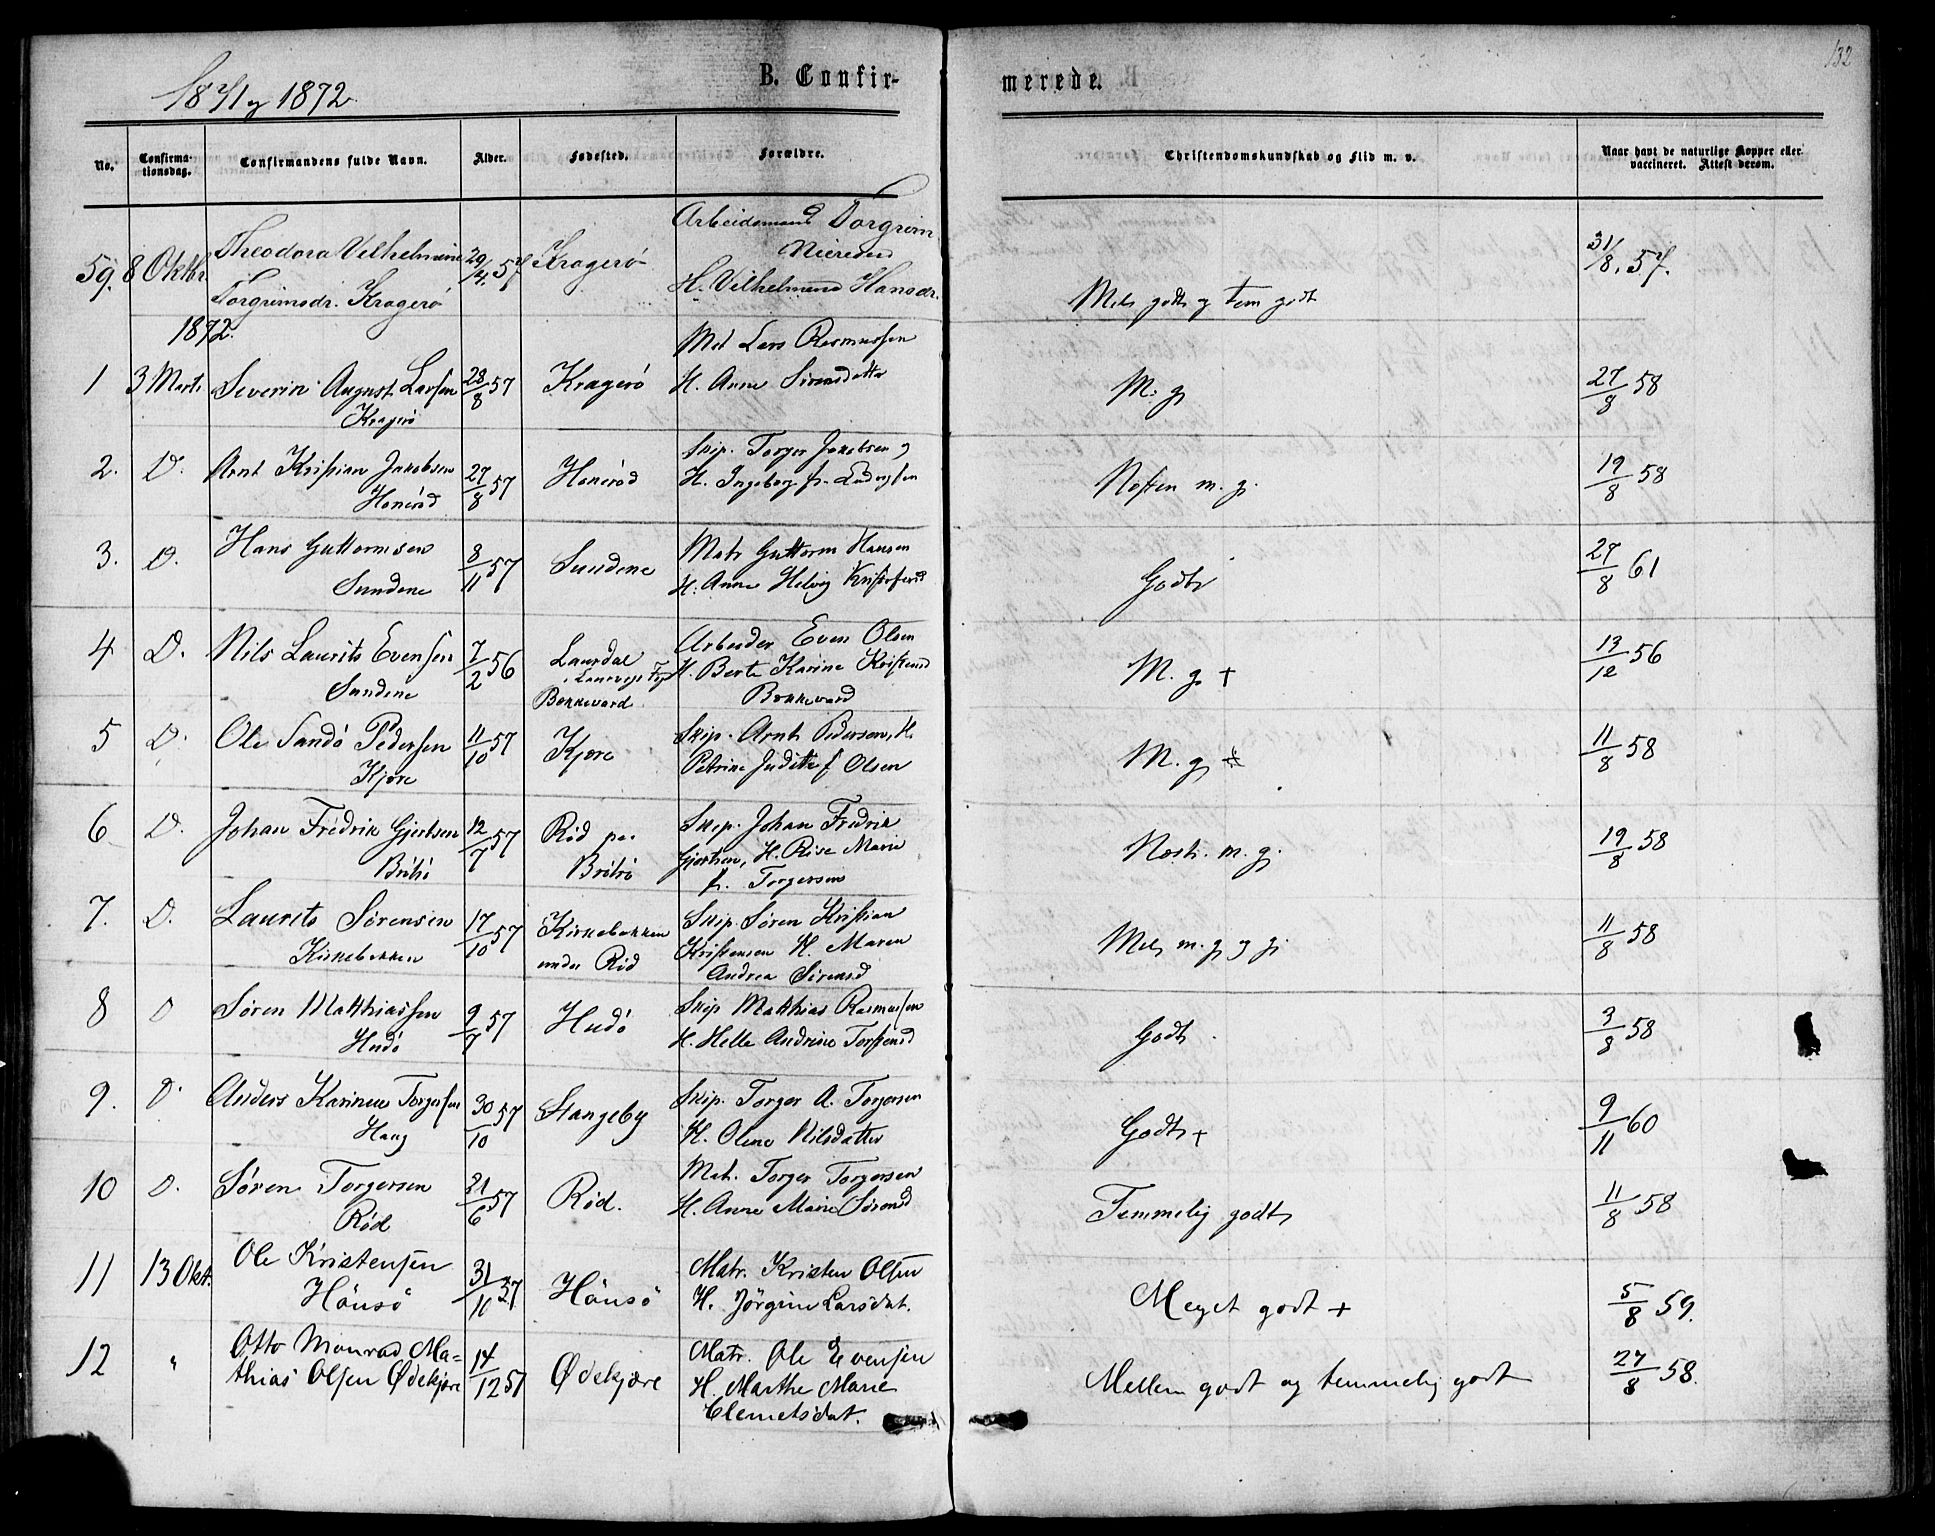 132
1871 og 1872.
B. Confir-
merede.
No.
Confirma-
tionsdag.
Confirmandens fulde Navn.
Alder.
Fødested.
Forældre.
Christendomskundskab og Flid m. v.
Naar havt de naturlige Kopper eller
vaccineret. Attest derom.
59. 8 Oktbr Theodora Vilhelmine 29/4 57 Kragerö Arbeidsmand Torgrim
Torgrimsdr. Kragerö
H. Vilhelmine Hansdr.
Mel. godt og tem godt 31/8 57.
1872.
1 3 Marts Severin August Larsen 28/8 57 Kragerö Mat Lars Rasmussen
Kragerö H. Anne Sörensdatter
M. g 27/8 58
2. D. Arnt Kristian Jakobsen 27/8 57 Haneröd Skip. Torger Jakobsen og
Haneröd H. Ingeborg f.
Næsten m. g. 19/8 58
3. D. Hans Guttormsen 8/11 57 Sundene Matr Guttorm Hansen
Sundene H. Anne Helvig Kristofersd
Godt 27/8 61
4 D. Nils Laurits Evensen 7/2 56 Laurdal Arbeider Even Olsen
Sundene Bokkevard H. Berte Karine Kristensd
Bokkevard
M. g + 13/12 56
5 D. Ole Sandö Pedersen 11/10 57 Kjöre Skip. Arnt Pedersen, H.
Kjöre Petrine Judithe f Olsen
M. g + 11/8 58
6 D. Johan Fredrik Gjertsen 12/7 57 Röd paa Skip. Johan Fredrik
Bråtö Bråtö Gjertsen, H. Rise Marie
f. Torgersen
Næst. m. g. 19/8 58
7. D. Laurits Sørensen 17/10 57 Kirkebakken Skip. Søren Kristian
Kirkebakken under Röd Kristensen H. Maren
Andrea Sörensd
Mel. m. g og g. 11/8 58
8 D Søren Matthiassen 9/7 57 Hudö Skip Matthias Rasmussen
Hudö H. Helle Andrine Torstensd
Godt 3/8 58
9. D. Anders Karinius Torgersen 30/10 57 Stangeby Skip. Torger A. Torgersen
Haug H. Olene Nilsdatter
Godt + 9/11 60
10 D. Søren Torgersen 21/6 57 Röd. Mat. Torger Torgersen
Röd H. Anne Marie Sörensd
Temmelig godt 11/8 58
11 13 Okt. Ole Kristensen 31/10 57 Hönsö Matr. Kristen Olsen
Hönsö H. Jörgine Larsdat.
Meget godt + 5/8 59.
12 " Otto Monrad Ma- 14/12 57 Ødekjære Matr. Ole Evensen
thias Olsen Ødekjære H. Marthe Marie
Clemetsdat.
Mellem godt og temmelig godt 27/8 58.